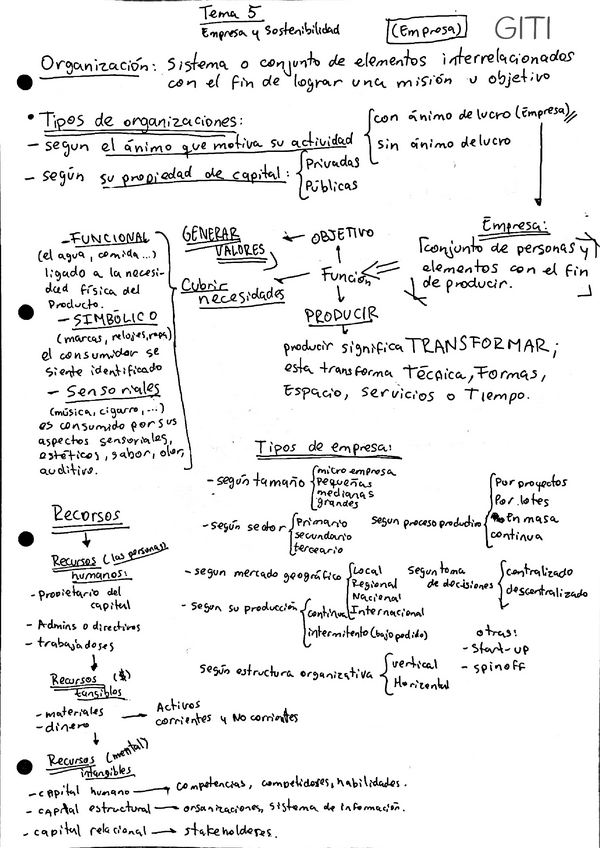 Tema 5
Empresa y Sostenibilidad
(Empresa)
GITI
Organización: Sistema o conjunto de elementos interrelacionados
con el fin de lograr una misión u objetivo
• Tipos de organizaciones:
- segun el ánimo que motiva su actividad
con ánimo de lucro (Empresa)
sin ánimo de lucro
- según su propiedad de capital:
Privadas
Públicas
Empresa:
conjunto de personas y
elementos con el fin
de producir.
Función
OBJETIVO
GENERAR
VALORES
Cubrir
necesidades
PRODUCIR
producir significa TRANSFORMAR;
esta transforma Técnica, Formas,
Espacio, Servicios o Tiempo.
- FUNCIONAL
(el agua, comida...)
ligado a la necesi-
dad física del
Producto.
- SIMBÓLICO
(marcas, relojes, ropa)
el consumidor se
siente identificado
- Sensoriales
(música, cigarro, ...)
es consumido por sus
aspectos sensoriales,
estéticos, sabor, olor,
auditivo.
Tipos de empresa:
- según tamaño
micro empresa
Pequeñas
medianas
grandes
- según sector
Primario
secundario
terceario
según proceso productivo
Por proyectos
Por lotes
En masa
continua
- segun mercado geográfico
Local
Regional
Nacional
Internacional
segun toma
de decisiones
centralizado
descentralizado
- segun su producción
continua
intermitento (bajo pedido)
otras:
- Start-up
- spinoff
según estructura organizativa
vertical
Horizontal
Recorsos
Recursos (las personas)
humanos:
- propietario del
capital
- Admins o directivos
- trabajadores
Recursos ($)
tangibles
- materiales
- dinero
Activos
corrientes y No corrientes
Recursos (mental)
intangibles
- capital humano → competencias, competidores, habilidades.
- capital estructural → organizaciones, sistema de información.
- capital relacional → stakeholderes.